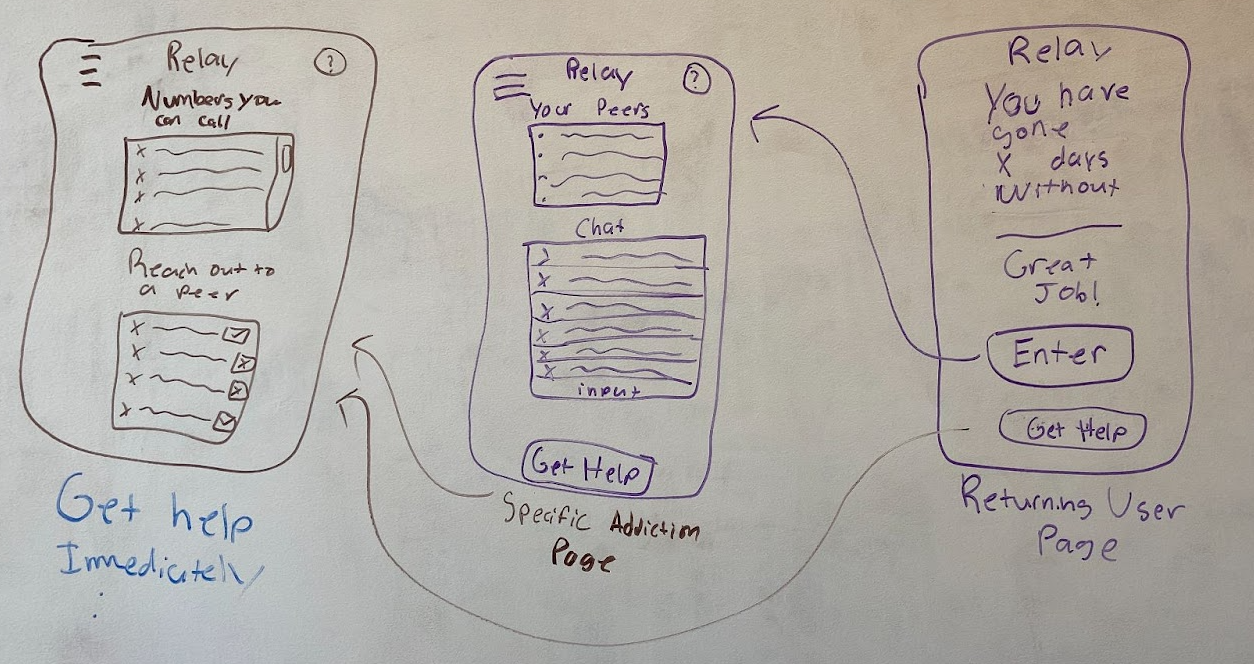 Relay
?
Numbers you
can call
x
x
x
x
Reach out to
a peer
x
x
x
x
Get help
Immediately
Relay
?
Your Peers
Chat
x
x
x
x
x
input
Get Help
Specific Addiction
Page
Relay
You have
gone
X days
Without
Great
Job!
Enter
Get Help
Returning User
Page